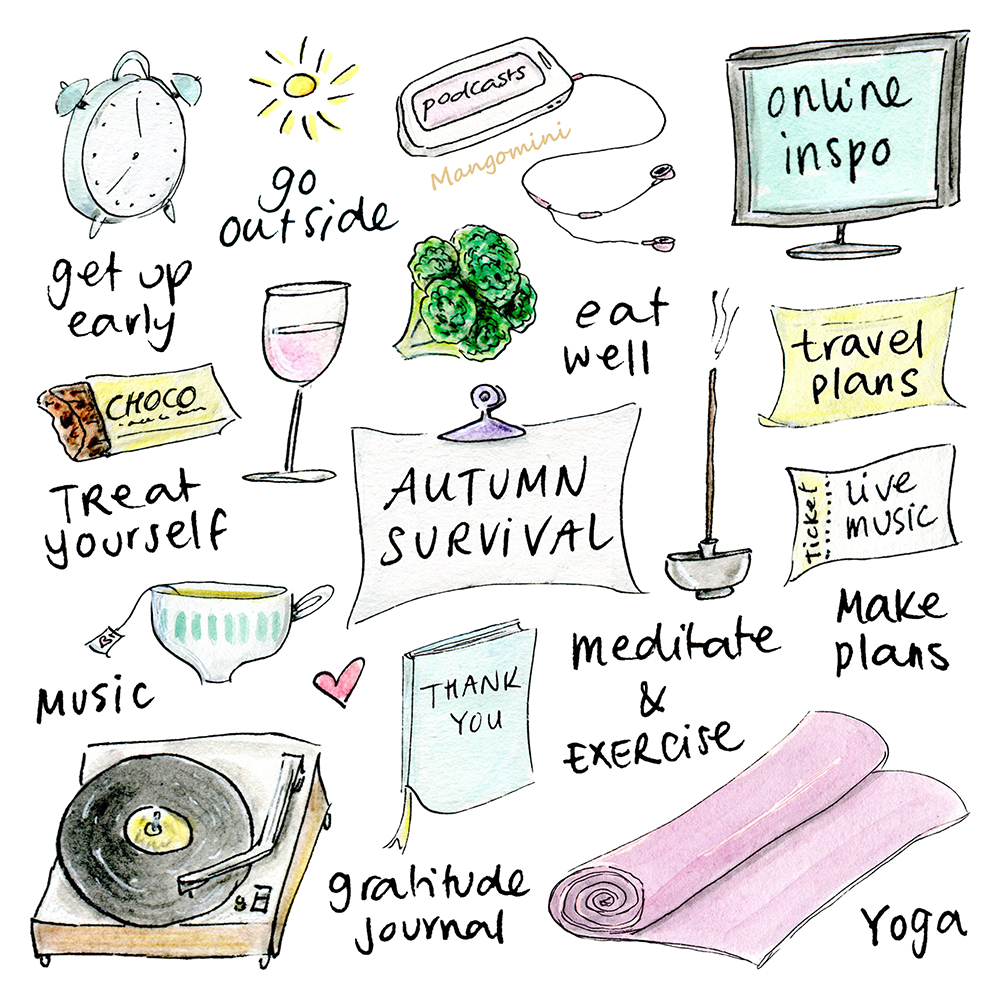 podcasts
Mangomini
online
inspo
go
outside
get up
early
eat
well
travel
plans
CHOCO
TReat
yourself
AUTUMN
SURViVAL
ticket
Live
music
Make
plans
meditate
&
EXERCise
MUSiC
THANK
YOU
gratitude
journal
Yoga